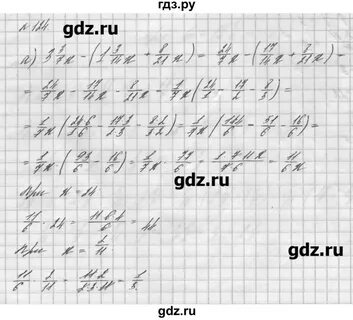 гдз.ру
№ 124
а) 3 3/7 x - (1 3/14 x + 8/21 x) = 24/7 x - (17/14 x + 8/21 x) =
= 24/7 x - 17/14 x - 8/21 x = 1/7 x (24/1 - 17/2 - 8/3) =
= 1/7 x (24·6/1·6 - 17·3/2·3 - 8·2/3·2) = 1/7 x · (144/6 - 51/6 - 16/6) =
= 1/7 x · (93/6 - 16/6) = 1/7 x · 77/6 = 1·7·11 x/7·6 = 11/6 x
При x = 24
11/6 · 24 = 11·6·4/6 = 44
При x = 2/11
11/6 · 2/11 = 11·2/2·3·11 = 1/3.
gdz.ru
gdz.ru
gdz.ru
gdz.ru
gdz.ru
gdz.ru